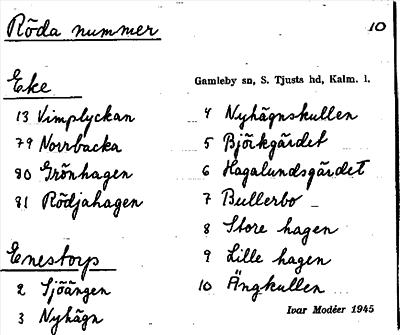 Röda nummer
10
Eke
13 Vimplyckan
79 Norrbacka
80 Grönhagen
81 Rödjahagen
Enestorp
2 Sjöängen
3 Nyhägn
Gamleby sn, S. Tjusts hd, Kalm. l.
4 Nyhägnskullen
5 Björkgärdet
6 Hagalundsgärdet
7 Bullerbo
8 Store hagen
9 Lille hagen
10 Ängkullen
Ivar Modéer 1945